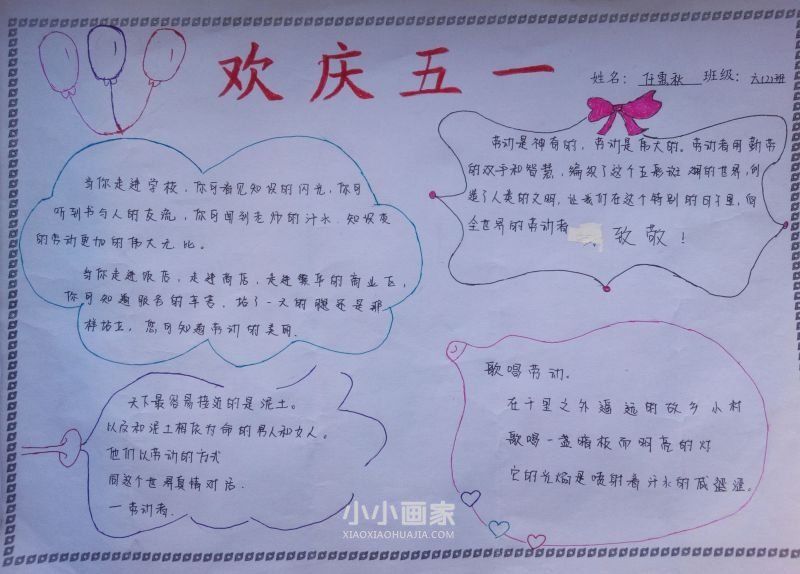 欢庆五一
姓名：任惠秋 班级：六(2)班
当你走进学校，你可看见知识的闪光，你可
听到书与人的交流，你可闻到老师的汗水，知识使
的劳动更加的伟大无比。
当你走进饭店，走进商店，走进繁华的商业区，
你可知道服务的辛苦，站了一天的腿还是那
样站立，您可知道劳动的美丽.
劳动是神奇的，劳动是伟大的。劳动者用勤劳
的双手和智慧，编织了这个五彩斑斓的世界，创
造了人类的文明，让我们在这个特别的日子里，向
全世界的劳动者 致敬！
天下最容易接近的是泥土。
以及和泥土相依为命的男人和女人。
他们以劳动的方式
同这个世界真情对话
一劳动者.
歌唱劳动。
在千里之外遥远的故乡小村
歌唱一盏暗板而明亮的灯
它的光焰是喷射着汗水的咸涩涩。
小小画家
XIAOXIAOHUAJIA.COM